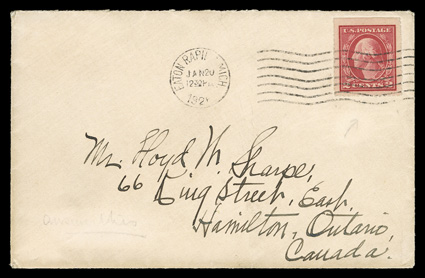 EATON RAPIDS MICH
JAN 20
12 30 PM
192
U.S. POSTAGE
2 CENTS 2
Mr. Floyd M. Sharpe,
66 King Street, East,
Hamilton, Ontario,
Canada.